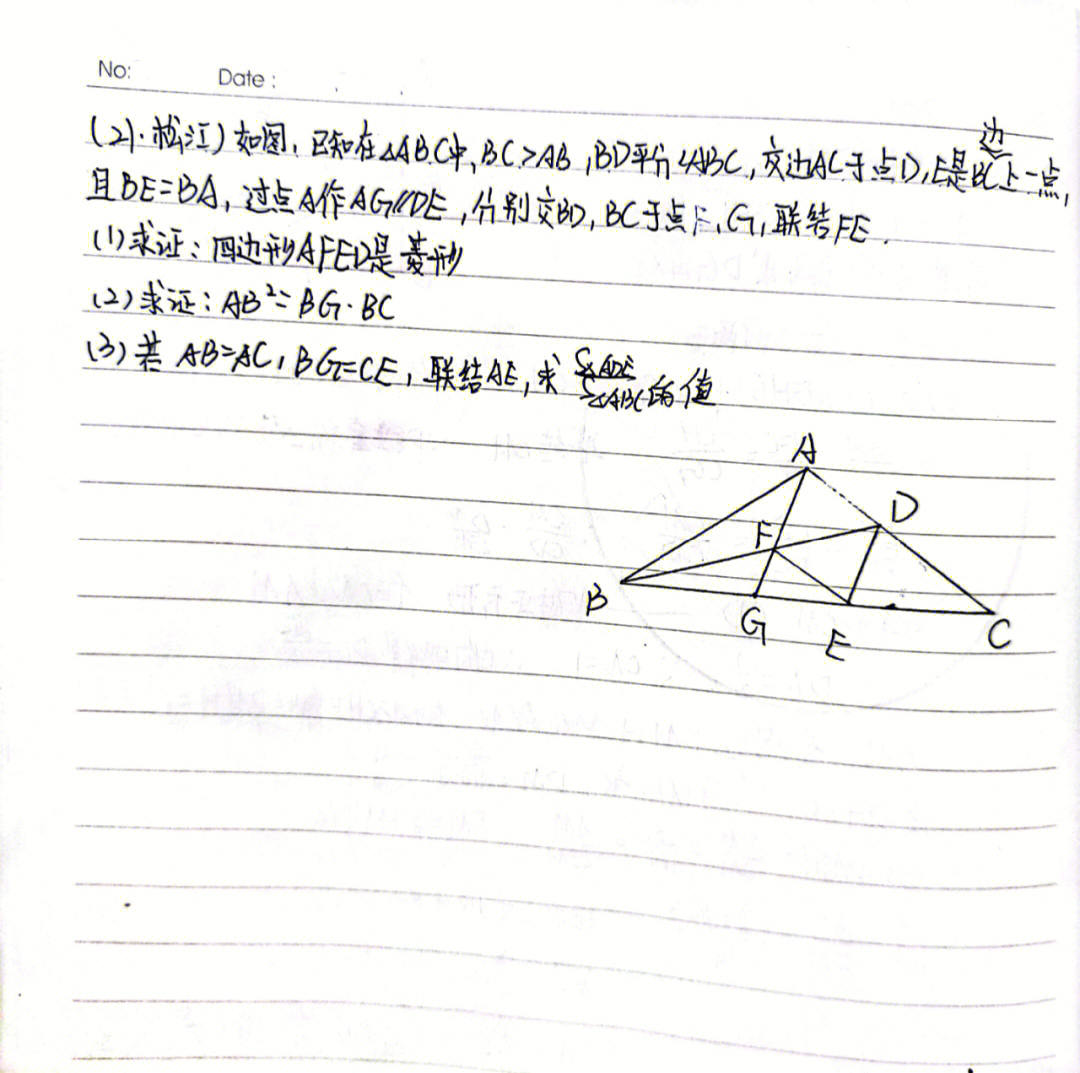 No: Date:
(21·松江) 如图, 已知在△ABC中, BC>AB, BD平分∠ABC, 交边AC于点D, E是BC边上一点,
且BE=BA, 过点A作AG//DE, 分别交BD, BC于点F, G, 联结FE.
(1) 求证: 四边形AFED是菱形
(2) 求证: AB²=BG·BC
(3) 若 AB=AC, BG=CE, 联结AE, 求 S△ADE/S△ABC 的值
A
D
F
B
G
E
C